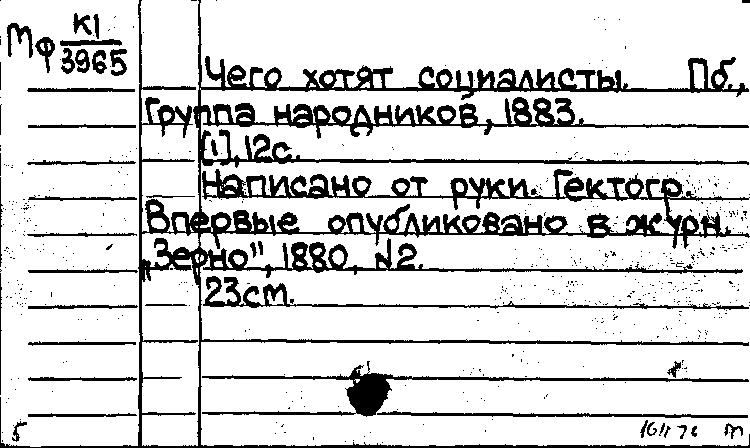 Мф К1
3965
Чего хотят социалисты. Пб.,
Группа народников, 1883.
[1], 12с.
Написано от руки. Гектогр.
Впервые опубликовано в журн.
„Зерно", 1880, №2.
23см.
5